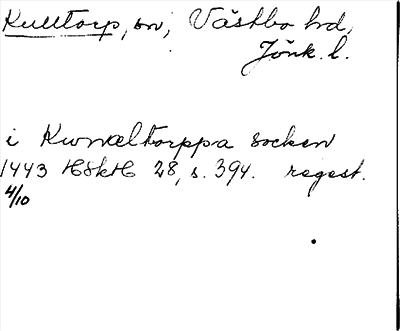 Kulltorp, sn, Västbo hd,
Jönk. l.
i Kwnæltorppa socken
1443 HSkH 28, s. 394. regest.
4/10